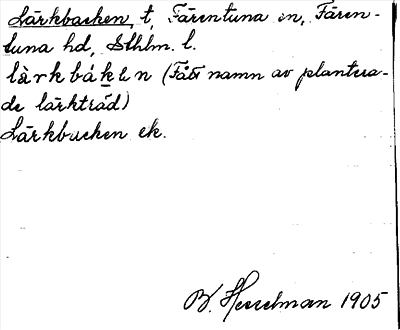 Lärkbacken, t, Färentuna sn, Fären-
tuna hd, Sthlm. l.
lärkbáken (Fått namn av plantera-
de lärkträd)
Lärkbacken ek.
B. Hesselman 1905